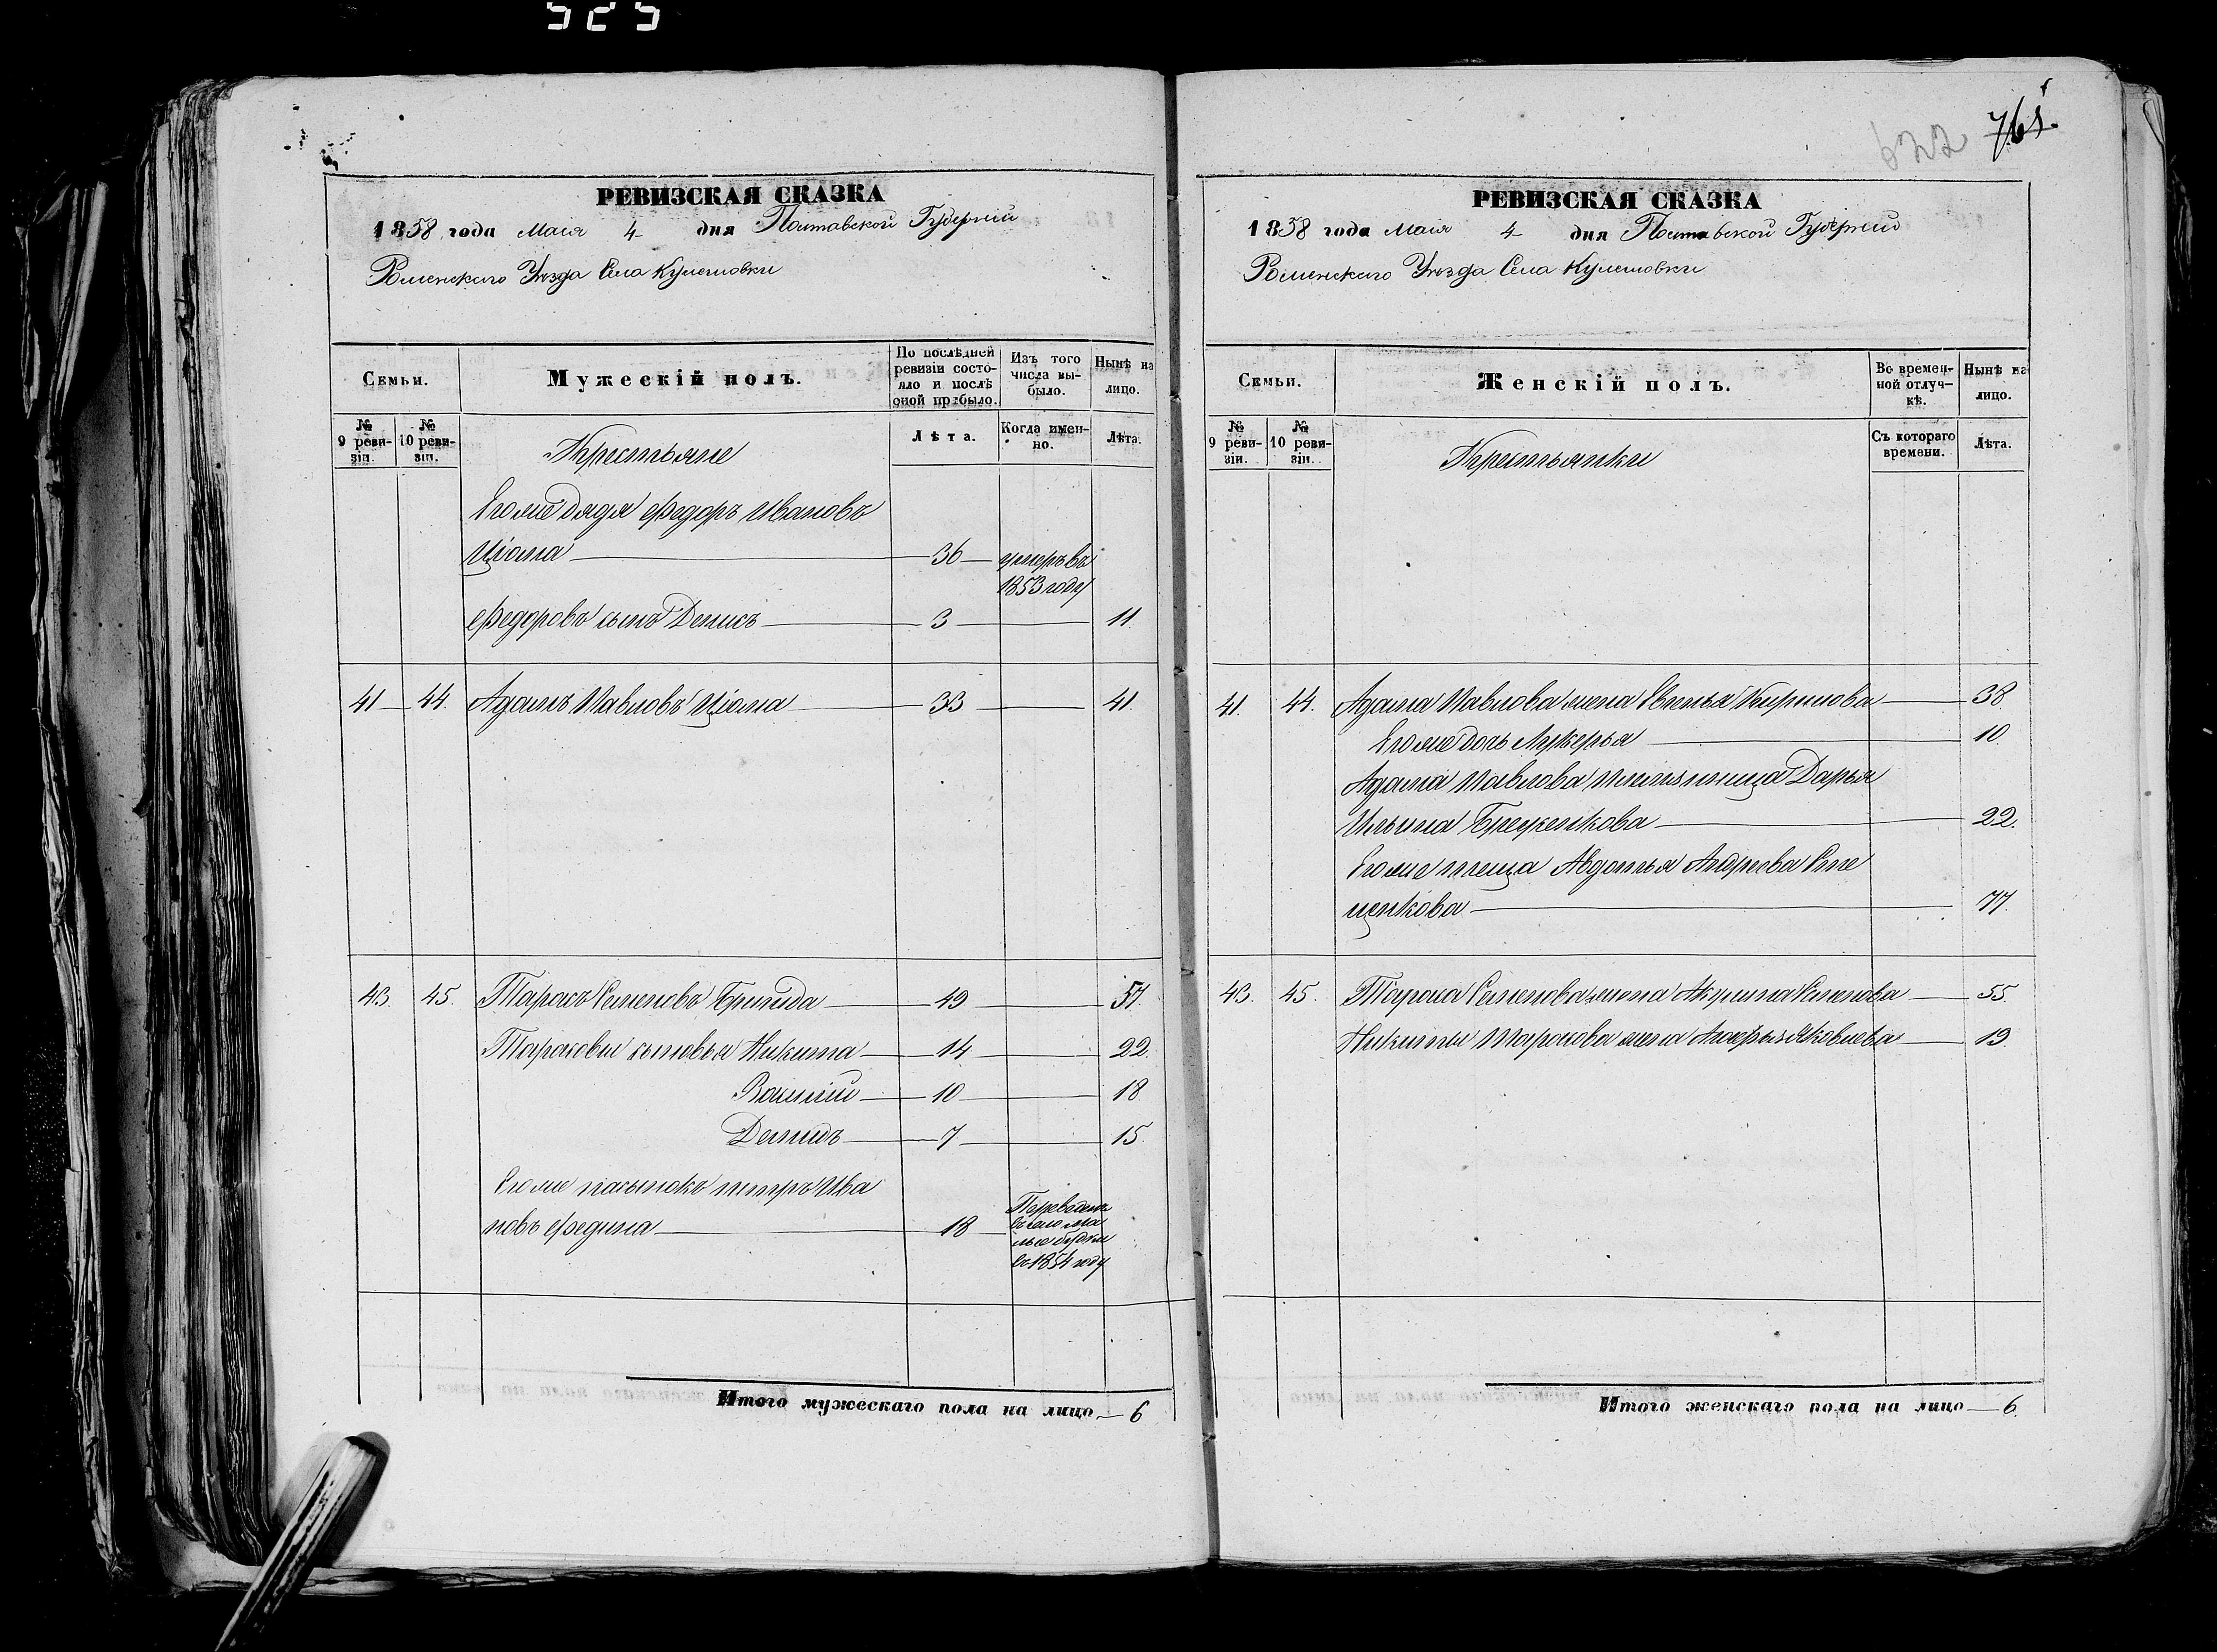 525
622 765
РЕВИЗСКАЯ СКАЗКА
1858 года Маія 4 дня Полтавской Губерніи
Роменскаго Уѣзда Села Кулешовки
Семьи.
Мужескій полъ.
По послѣдней ревизіи состояло и послѣ оной прибыло.
Изъ того числа выбыло.
Нынѣ на лицо.
№ 9 ревизіи.
№ 10 ревизіи.
Крестьяне
Лѣта.
Когда именно.
Лѣта.
Его же дядя Федоръ Ивановъ
Цюма 36 умеръ въ
1853 году
Федоровъ сынъ Денисъ 3 11
41 44. Адамъ Павловъ Цюма 33 41
43. 45. Тарасъ Семеновъ Бригида 49 57.
Тарасовы сыновья Никита 14 22
Василій 10 18
Демидъ 7 15
Его же пасынокъ Петръ Ива
новъ Федина 18 Переведенъ
въ 1854 году
Итого мужескаго пола на лицо 6
РЕВИЗСКАЯ СКАЗКА
1858 года Маія 4 дня Полтавской Губерніи
Роменскаго Уѣзда Села Кулешовки
Семьи.
Женскій полъ.
Во временной отлучкѣ.
Нынѣ на лицо.
№ 9 ревизіи.
№ 10 ревизіи.
Крестьянки
Съ котораго времени.
Лѣта.
41. 44. Адама Павлова жена Кирилова 38
Его же дочь Лукерья 10
Адама Павлова племянница Дарья
Ильина 22.
Его же теща Авдотья Андреева Сте
ценкова 77.
43. 45. Тараса Семенова жена Акулина Семенова 55
Никиты Тарасова жена Яковлева 19
Итого женскаго пола на лицо 6.